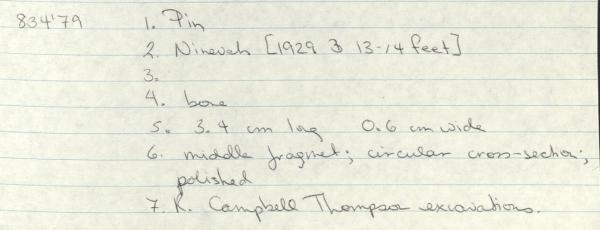 834'79
1. Pin
2. Nineveh [1929 3 13-14 feet]
3.
4. bone
5. 3.4 cm long 0.6 cm wide
6. middle fragmet; circular cross-section;
polished
7. R. Campbell Thompson excavations.